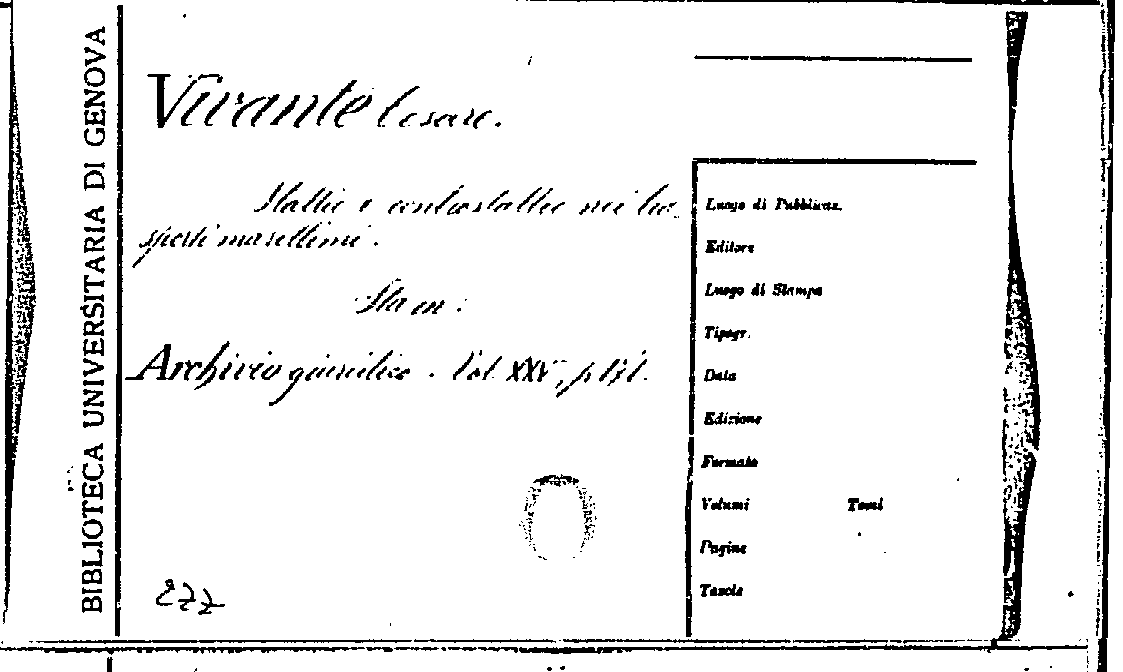 BIBLIOTECA UNIVERSITARIA DI GENOVA
Vivante Cesare.
Stallie e controstallie nei tra-
sporti marittimi.
Sta in:
Archivio giuridico. Vol. XXV, p.
277
Luogo di Pubblicaz.
Editore
Luogo di Stampa
Tipogr.
Data
Edizione
Formato
Volumi Tomi
Pagine
Tavole